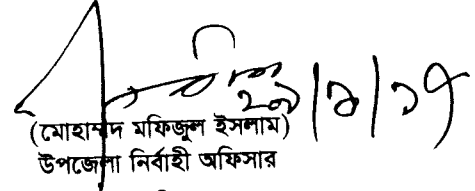 ২০/৯/১৭
(মোহাম্মদ মফিজুল ইসলাম)
উপজেলা নির্বাহী অফিসার